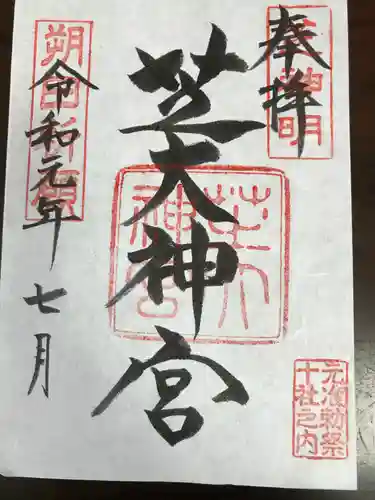 奉拝
芝大神宮
令和元年七月
朔日祈願
芝大神宮
元准勅祭
十社之内